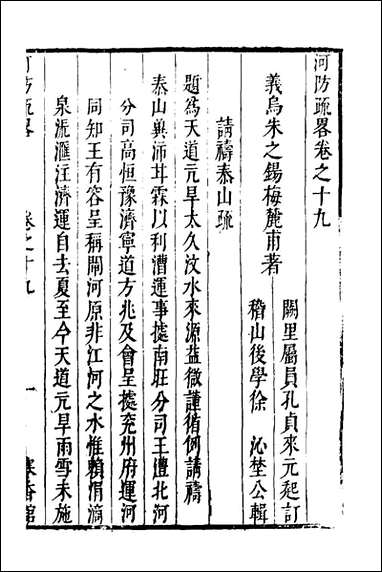 河防疏畧卷之十九
闕里屬員孔貞來元起訂
義烏朱之錫梅麓甫著
稽山後學徐沁埜公輯
請禱泰山疏
題為天道亢旱太久汶水來源益微謹循例請禱
泰山冀沛甘霖以利漕運事據南旺分司王澧北河
分司高恒豫濟寧道方兆及會呈據兖州府運河
同知王有容呈稱閘河原非江河之水惟賴涓滴
泉流滙注濟運自去夏至今天道亢旱雨雪未施
河防疏畧
卷之十九
一
寒香館